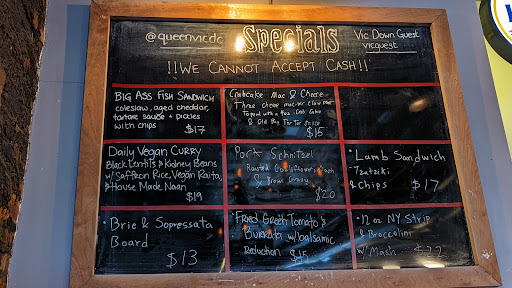 @queenvicdc
Specials
Vic Down Guest
vicguest
!! We Cannot Accept Cash !!
Big Ass Fish Sandwich
coleslaw, aged cheddar,
tartare sauce + pickles
with chips $17
Crabcake Mac & Cheese
Three cheese
Topped with a
& Old Bay Tar Tar Sauce
$15
Daily Vegan Curry
Black Lentils & Kidney Beans
w/ Saffron Rice, Vegan Raita,
& House Made Naan
$19
Pork Schnitzel
Roasted Cauliflower, Mash
& Brown Gravy
$20
• Lamb Sandwich
- Tzatziki
& Chips $17
• Brie & Sopressata
Board
$13
Fried Green Tomato &
Burrata w/ balsamic
Reduction $15
• 12 oz NY Strip
& Broccolini
w/ Mash $22